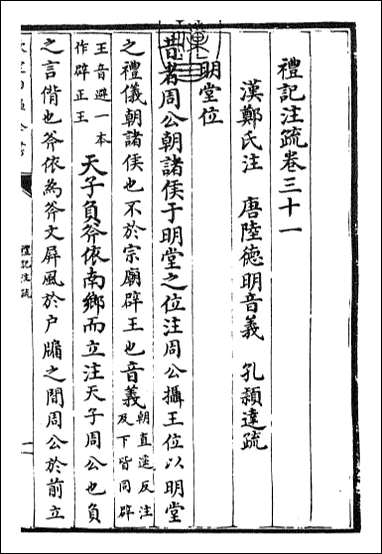 禮記注疏卷三十一
漢鄭氏注　唐陸德明音義　孔穎達疏
明堂位
昔者周公朝諸侯于明堂之位注周公攝王位以明堂
之禮儀朝諸侯也不於宗廟辟王也音義朝直遥反注
及下皆同辟
王音避一本
作辟正王
天子負斧依南鄉而立注天子周公也負
之言偝也斧依為斧文屏風於户牖之間周公於前立
禮記注疏
一